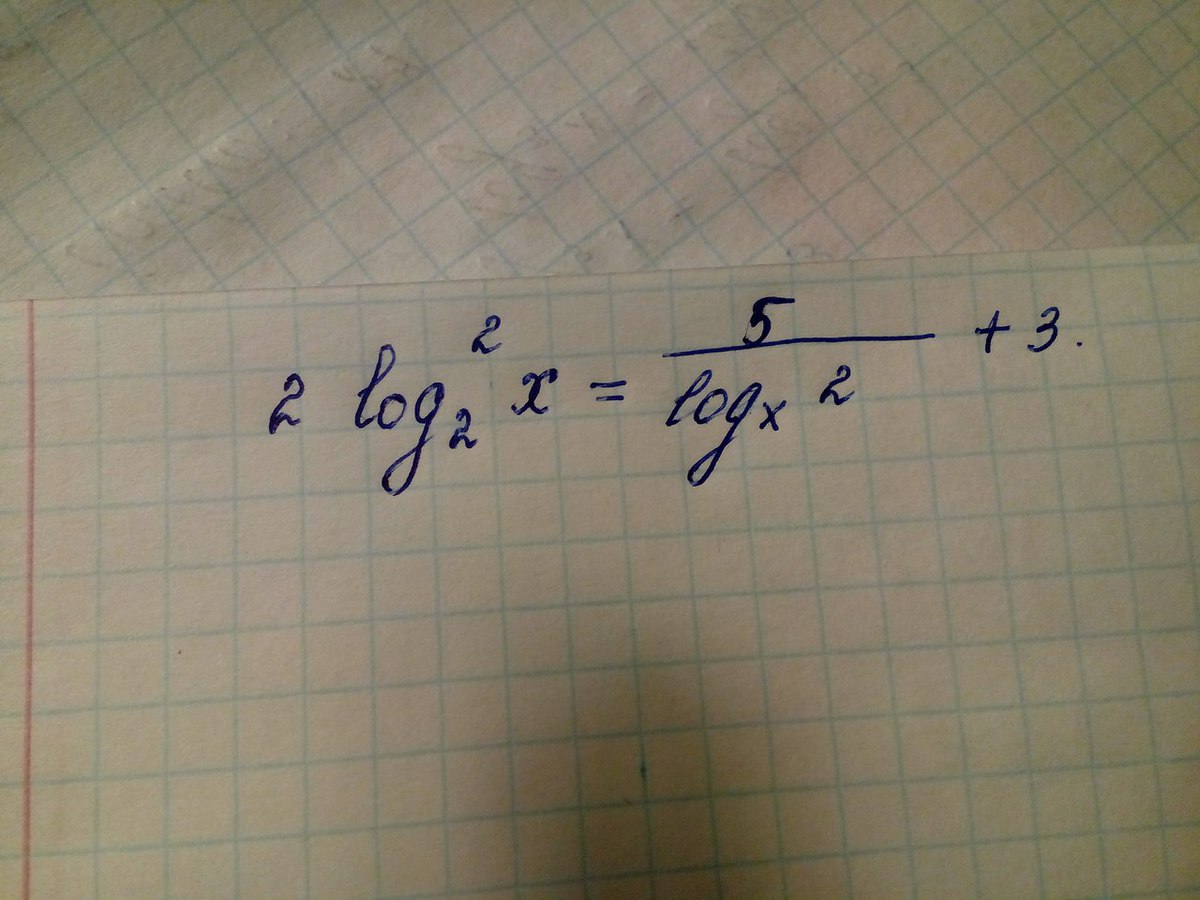 2 log₂² x = 5/(logₓ 2) + 3.